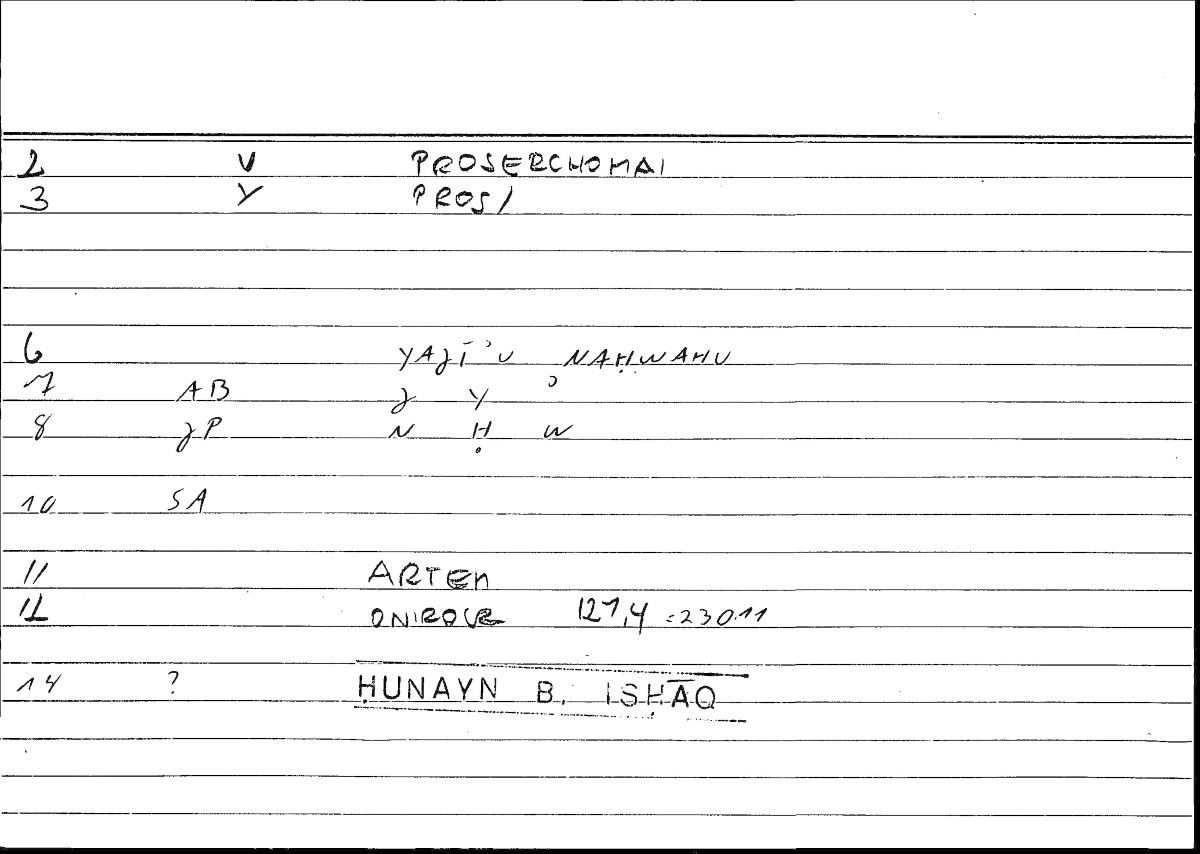 2 V PROSERCHOMAI
3 Y PROS/
6 YAJĪʾU NAḤWAHU
7 AB J Y ʾ
8 JP N Ḥ W
10 SA
11 ARTEM
12 ONIROCR 127,4 = 230.11
14 ? ḤUNAYN B. ISḤĀQ